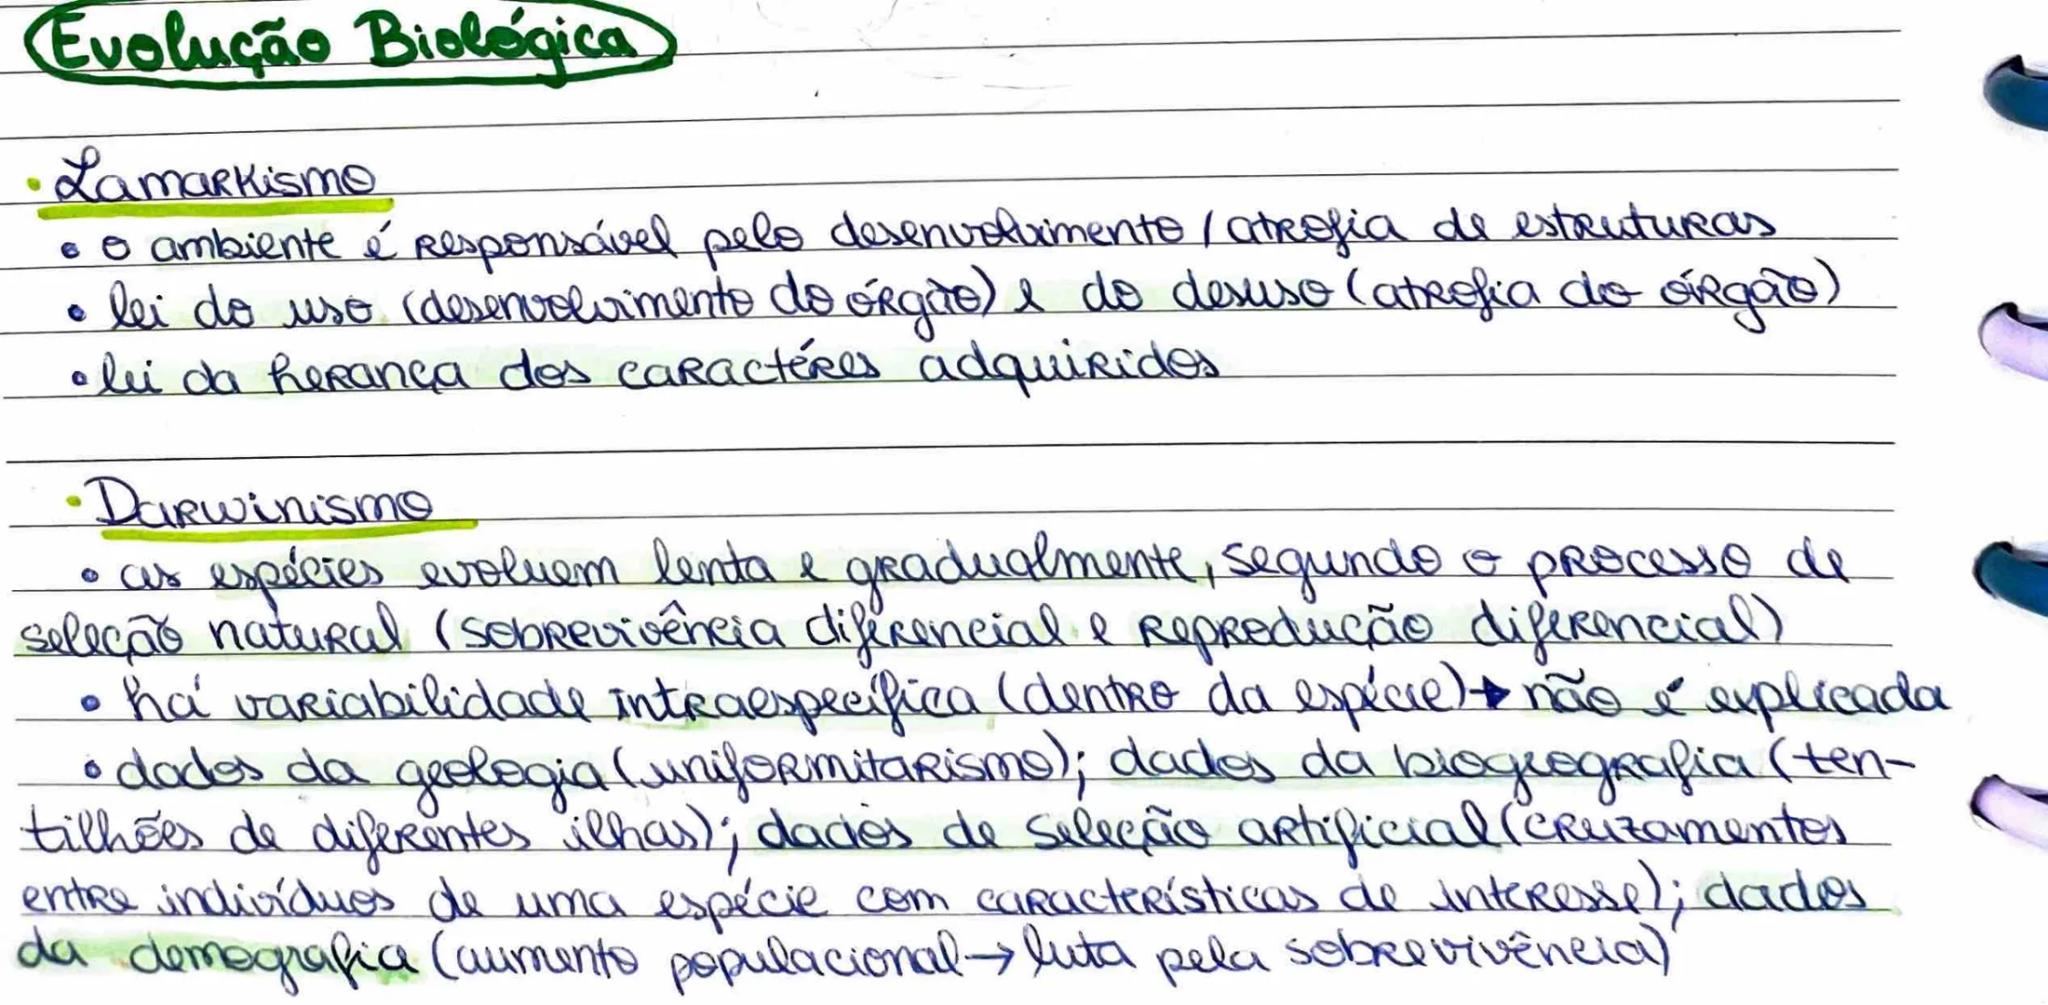 Evolução Biológica
• Lamarkismo
• o ambiente é responsável pelo desenvolvimento / atrofia de estruturas
• lei do uso (desenvolvimento do órgão) e do desuso (atrofia do órgão)
• lei da herança dos caractéres adquiridos
• Darwinismo
• as espécies evoluem lenta e gradualmente, segundo o processo de
seleção natural (sobrevivência diferencial e reprodução diferencial)
• há variabilidade intraespecífica (dentro da espécie) → não é explicada
• dados da geologia (uniformitarismo); dados da biogeografia (ten-
tilhões de diferentes ilhas); dados de seleção artificial (cruzamentos
entre indivíduos de uma espécie com características de interesse); dados
da demografia (aumento populacional → luta pela sobrevivência)